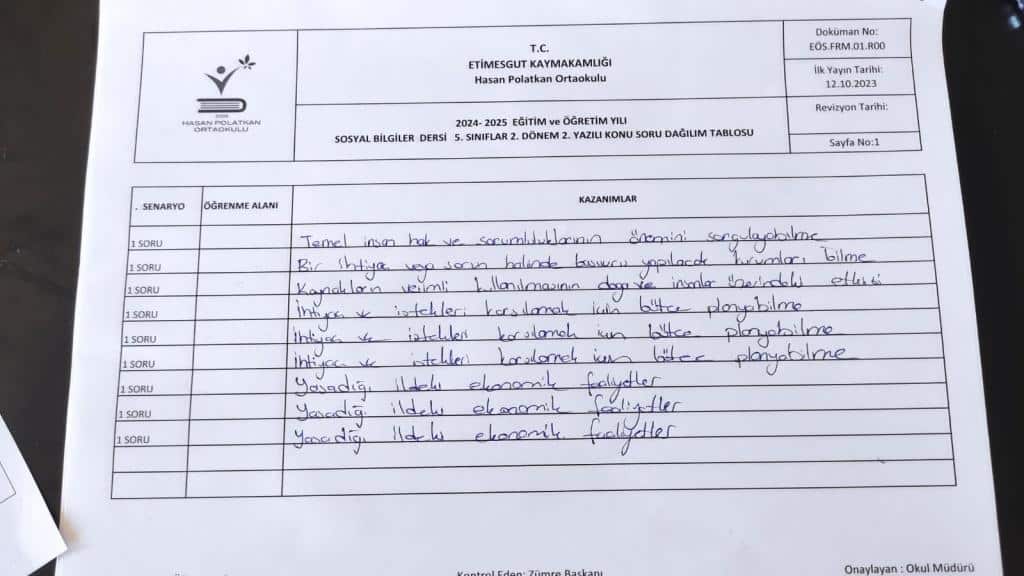 T.C.
ETİMESGUT KAYMAKAMLIĞI
Hasan Polatkan Ortaokulu
Doküman No:
EÖS.FRM.01.R00
İlk Yayın Tarihi:
12.10.2023
Revizyon Tarihi:
Sayfa No:1
HASAN POLATKAN
ORTAOKULU
2024- 2025 EĞİTİM ve ÖĞRETİM YILI
SOSYAL BİLGİLER DERSİ 5. SINIFLAR 2. DÖNEM 2. YAZILI KONU SORU DAĞILIM TABLOSU
. SENARYO ÖĞRENME ALANI KAZANIMLAR
1 SORU Temel insan hak ve sorumluluklarının önemini sorgulayabilme
1 SORU Bir ihtiyaç veya sorun halinde başvuru yapılacak kurumları bilme
1 SORU Kaynakların verimli kullanılmasının doğa ve insanlar üzerindeki etkisi
1 SORU İhtiyaç ve istekleri karşılamak için bütçe planyabilme
1 SORU İhtiyaç ve istekleri karşılamak için bütçe planyabilme
1 SORU İhtiyaç ve istekleri karşılamak için bütçe planyabilme
1 SORU Yaşadığı ildeki ekonomik faaliyetler
1 SORU Yaşadığı ildeki ekonomik faaliyetler
1 SORU Yaşadığı ildeki ekonomik faaliyetler
Kontrol Eden: Zümre Başkanı
Onaylayan : Okul Müdürü